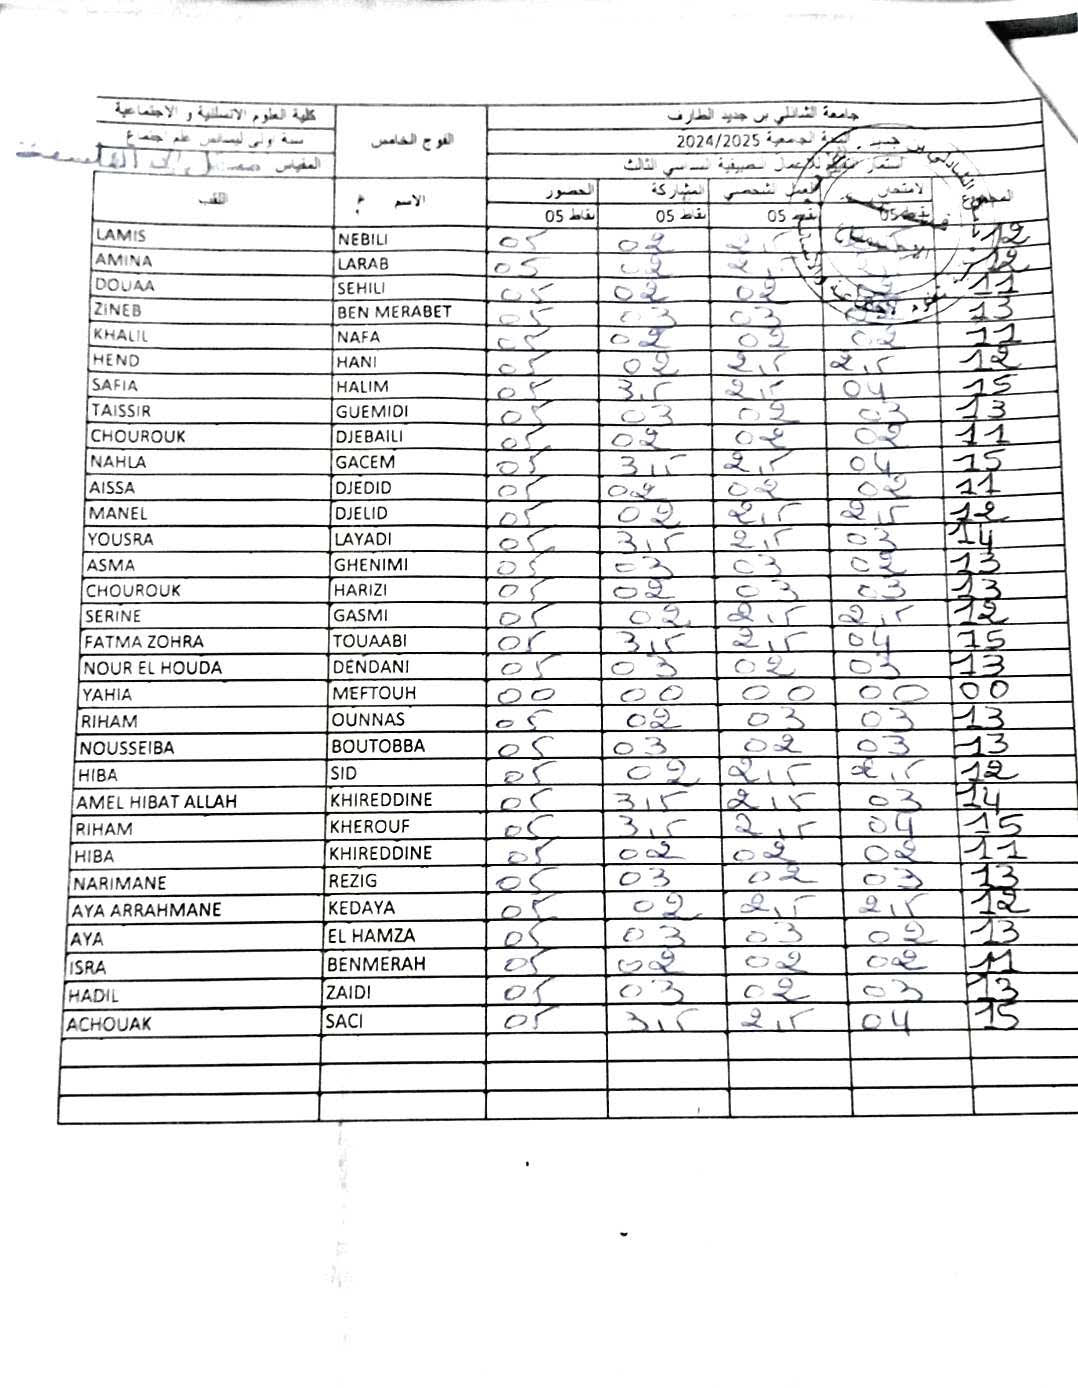 جامعة الشاذلي بن جديد الطارف الفوج الخامس كلية العلوم الانسانية و الاجتماعية
السنة الجامعية 2024/2025 سنة اولى ليسانس علم اجتماع
السداسي الثالث المقياس
المجموع الامتحان العمل الشخصي المشاركة الحضور الاسم اللقب
نقاط 05 نقاط 05 نقاط 05 نقاط 05
LAMIS NEBILI 05 02 2,5 12
AMINA LARAB 05 02 2,5 12
DOUAA SEHILI 05 02 02 11
ZINEB BEN MERABET 05 03 03 13
KHALIL NAFA 05 02 02 02 11
HEND HANI 05 02 2,5 2,5 12
SAFIA HALIM 05 3,5 2,5 04 15
TAISSIR GUEMIDI 05 03 02 03 13
CHOUROUK DJEBAILI 05 02 02 02 11
NAHLA GACEM 05 3,5 2,5 04 15
AISSA DJEDID 05 02 02 02 11
MANEL DJELID 05 02 2,5 2,5 12
YOUSRA LAYADI 05 3,5 2,5 03 14
ASMA GHENIMI 05 03 03 02 13
CHOUROUK HARIZI 05 02 03 03 13
SERINE GASMI 05 02 2,5 2,5 12
FATMA ZOHRA TOUAABI 05 3,5 2,5 04 15
NOUR EL HOUDA DENDANI 05 03 02 03 13
YAHIA MEFTOUH 00 00 00 00 00
RIHAM OUNNAS 05 02 03 03 13
NOUSSEIBA BOUTOBBA 05 03 02 03 13
HIBA SID 05 02 2,5 2,5 12
AMEL HIBAT ALLAH KHIREDDINE 05 3,5 2,5 03 14
RIHAM KHEROUF 05 3,5 2,5 04 15
HIBA KHIREDDINE 05 02 02 02 11
NARIMANE REZIG 05 03 02 03 13
AYA ARRAHMANE KEDAYA 05 02 2,5 2,5 12
AYA EL HAMZA 05 03 03 02 13
ISRA BENMERAH 05 02 02 02 11
HADIL ZAIDI 05 03 02 03 13
ACHOUAK SACI 05 3,5 2,5 04 15